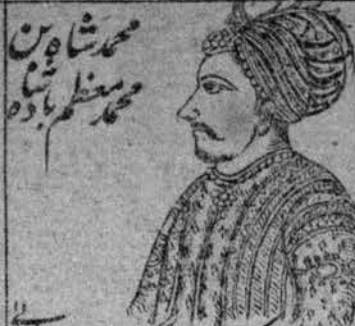 محمد شاه بن
محمد معظم بادشاه